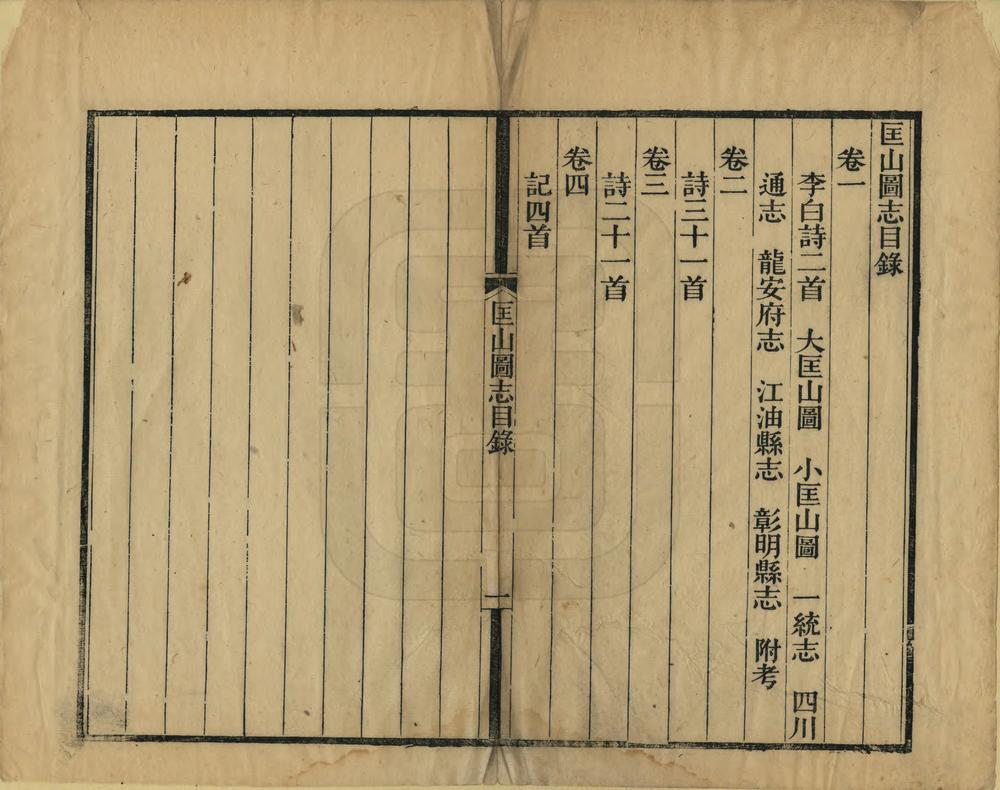 匡山圖志目錄
卷一
李白詩二首　大匡山圖　小匡山圖　一統志　四川
通志　龍安府志　江油縣志　彰明縣志　附考
卷二
詩三十一首
卷三
詩二十一首
卷四
記四首
匡山圖志目錄
一